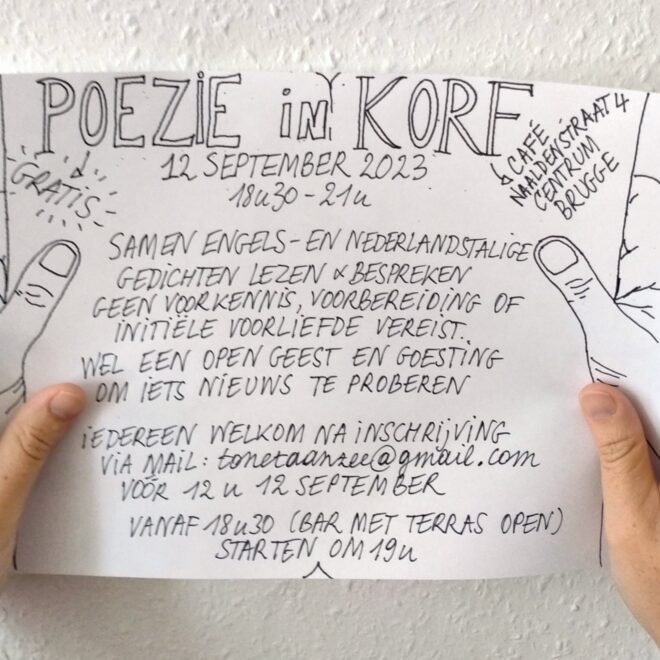 POEZIE in KORF
↳ CAFÉ
NAALDENSTRAAT 4
CENTRUM
BRUGGE
GRATIS
12 SEPTEMBER 2023
18u30 - 21u
SAMEN ENGELS- EN NEDERLANDSTALIGE
GEDICHTEN LEZEN & BESPREKEN
GEEN VOORKENNIS, VOORBEREIDING OF
INITIËLE VOORLIEFDE VEREIST.
WEL EEN OPEN GEEST EN GOESTING
OM IETS NIEUWS TE PROBEREN
IEDEREEN WELKOM NA INSCHRIJVING
VIA MAIL: tonetaanzee@gmail.com
VÓÓR 12 u 12 SEPTEMBER
VANAF 18u30 (BAR MET TERRAS OPEN)
STARTEN OM 19u